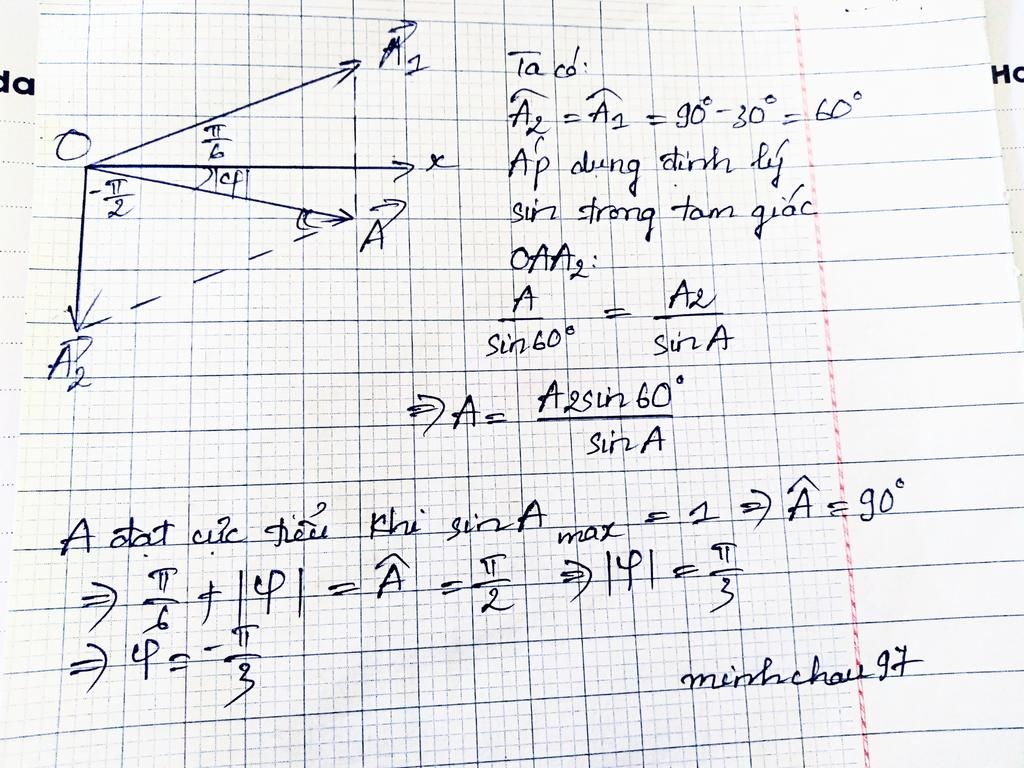 da
Ho
A⃗₁
O
π/6
x
|φ|
-π/2
A⃗
A⃗₂
Ta có:
Â₂ = Â₁ = 90° - 30° = 60°
Áp dụng định lý
sin trong tam giác
OAA₂:
A/sin60° = A₂/sinA
⇒ A = A₂sin60°/sinA
A đạt cực tiểu khi sinA max = 1 ⇒ Â = 90°
⇒ π/6 + |φ| = Â = π/2 ⇒ |φ| = π/3
⇒ φ = -π/3
minhchau97